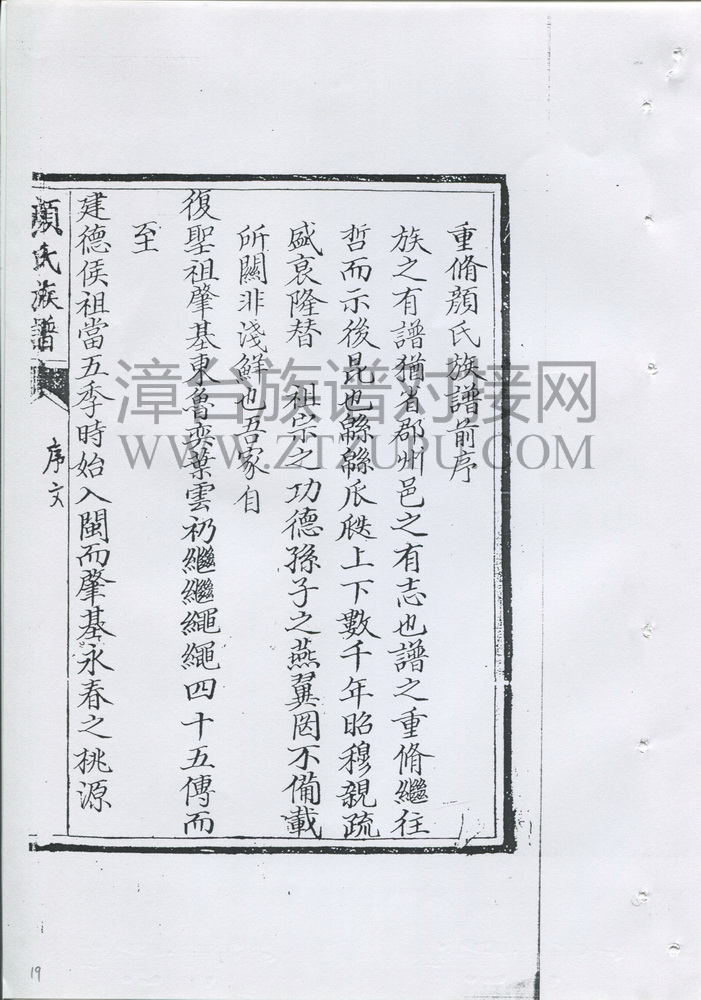 重脩顏氏族譜前序
族之有譜猶省郡州邑之有志也譜之重脩繼往
哲而示後昆也緜緜瓜瓞上下數千年昭穆親疏
盛衰隆替 祖宗之功德孫子之燕翼罔不備載
所關非淺鮮也吾家自
復聖祖肇基東魯奕葉雲礽繼繼繩繩四十五傳而
至
建德侯祖當五季時始入閩而肇基永春之桃源
顏氏族譜
序文
漳台族谱对接网
WWW.ZTZUPU.COM
19